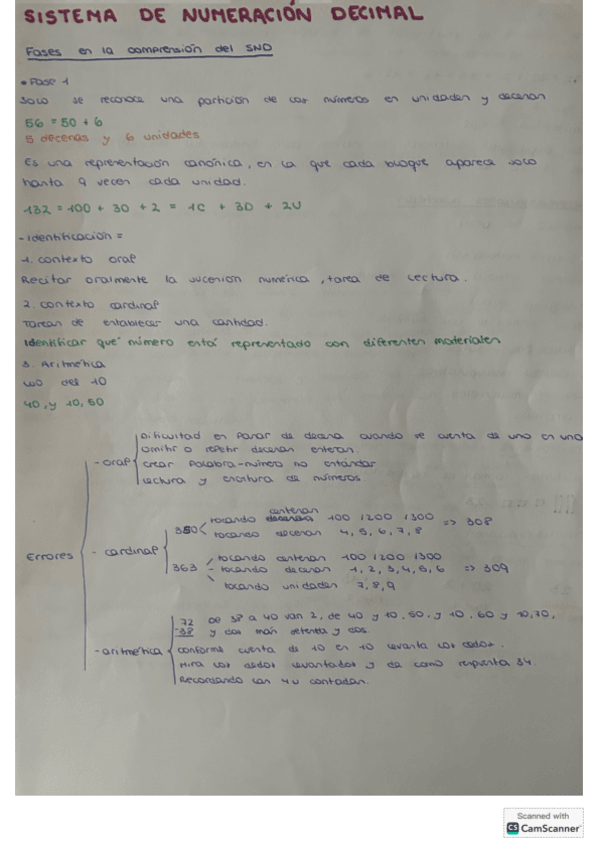 SISTEMA DE NUMERACIÓN DECIMAL
Fases en la comprensión del SND
• Fase 1
Solo se reconoce una partición de los números en unidades y decenas
56 = 50 + 6
5 decenas y 6 unidades
Es una representación canónica, en la que cada bloque aparece solo
hasta 9 veces cada unidad.
132 = 100 + 30 + 2 = 1C + 3D + 2U
- Identificación =
1. Contexto oral
Recitar oralmente la sucesión numérica, tarea de lectura.
2. Contexto cardinal
Tareas de establecer una cantidad.
Identificar qué número está representado con diferentes materiales
3. Aritmética
uso del 10
40, y 10, 50
Errores
- oral
Dificultad en pasar de decena cuando se cuenta de uno en uno
Omitir o repetir decenas enteras.
Crear palabra-número no estándar
Lectura y escritura de números.
- cardinal
350 tocando centenas 100 1200 1300 => 308
tocando decenas 4, 5, 6, 7, 8
363 tocando centenas 100 1200 1300
- tocando decenas 1, 2, 3, 4, 5, 6 => 309
tocando unidades 7, 8, 9
- aritmética
72 De 38 a 40 van 2, de 40 y 10, 50, y 10, 60 y 10, 70,
-38 y dos más setenta y dos.
conforme cuenta de 10 en 10 levanta los dedos.
Mira los dedos levantados y da como respuesta 34
Recordando las 4u contadas.
Scanned with
CS CamScanner